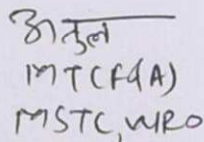 अतुल
MT(F&A)
MSTC, WRO